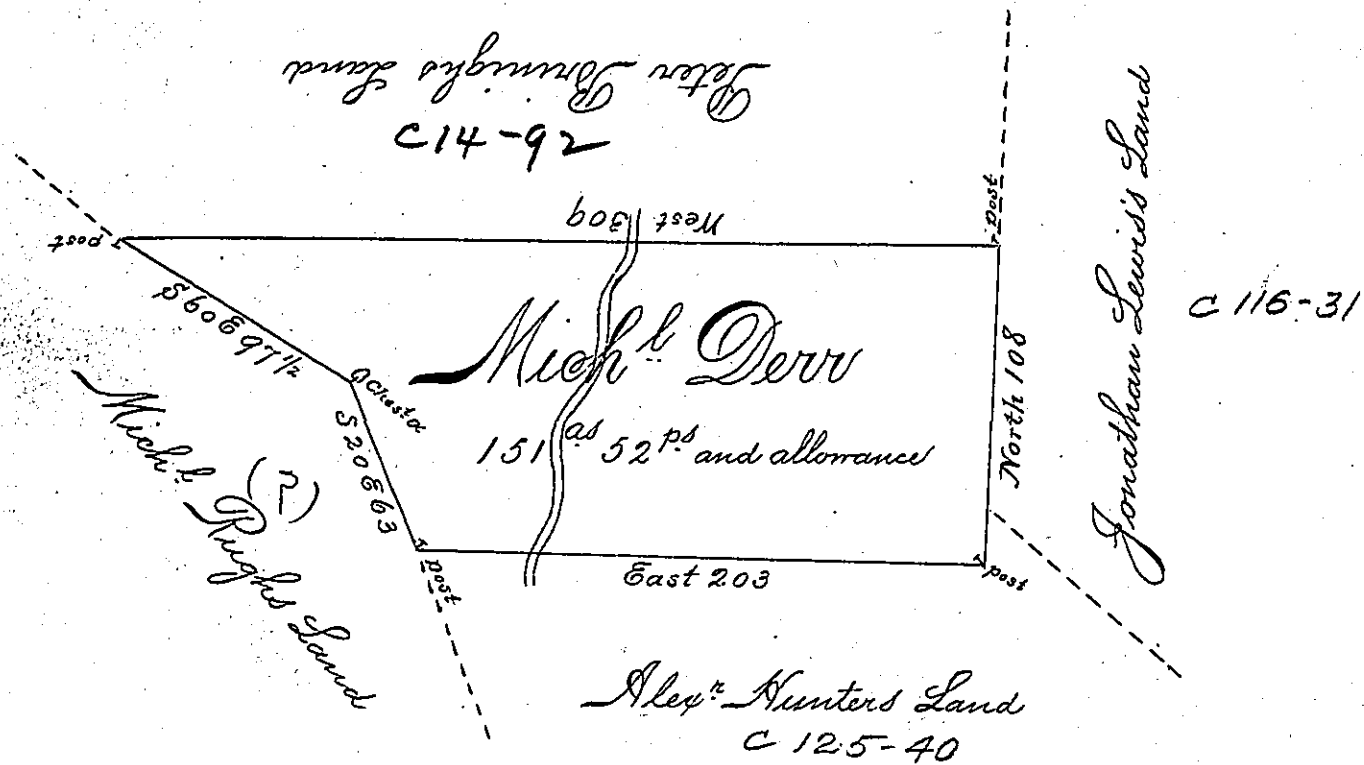 Peter Brinighs Land
C 14-92
West 309
post
post
S60E 97½
Chest.
S20E63
Mich.l Derr
151 as 52 ps and allowance
North 108
Jonathan Lewis's Land
C 116-31
Mich.l Rughs Land
post
East 203
post
Alex.r Hunters Land
C 125-40